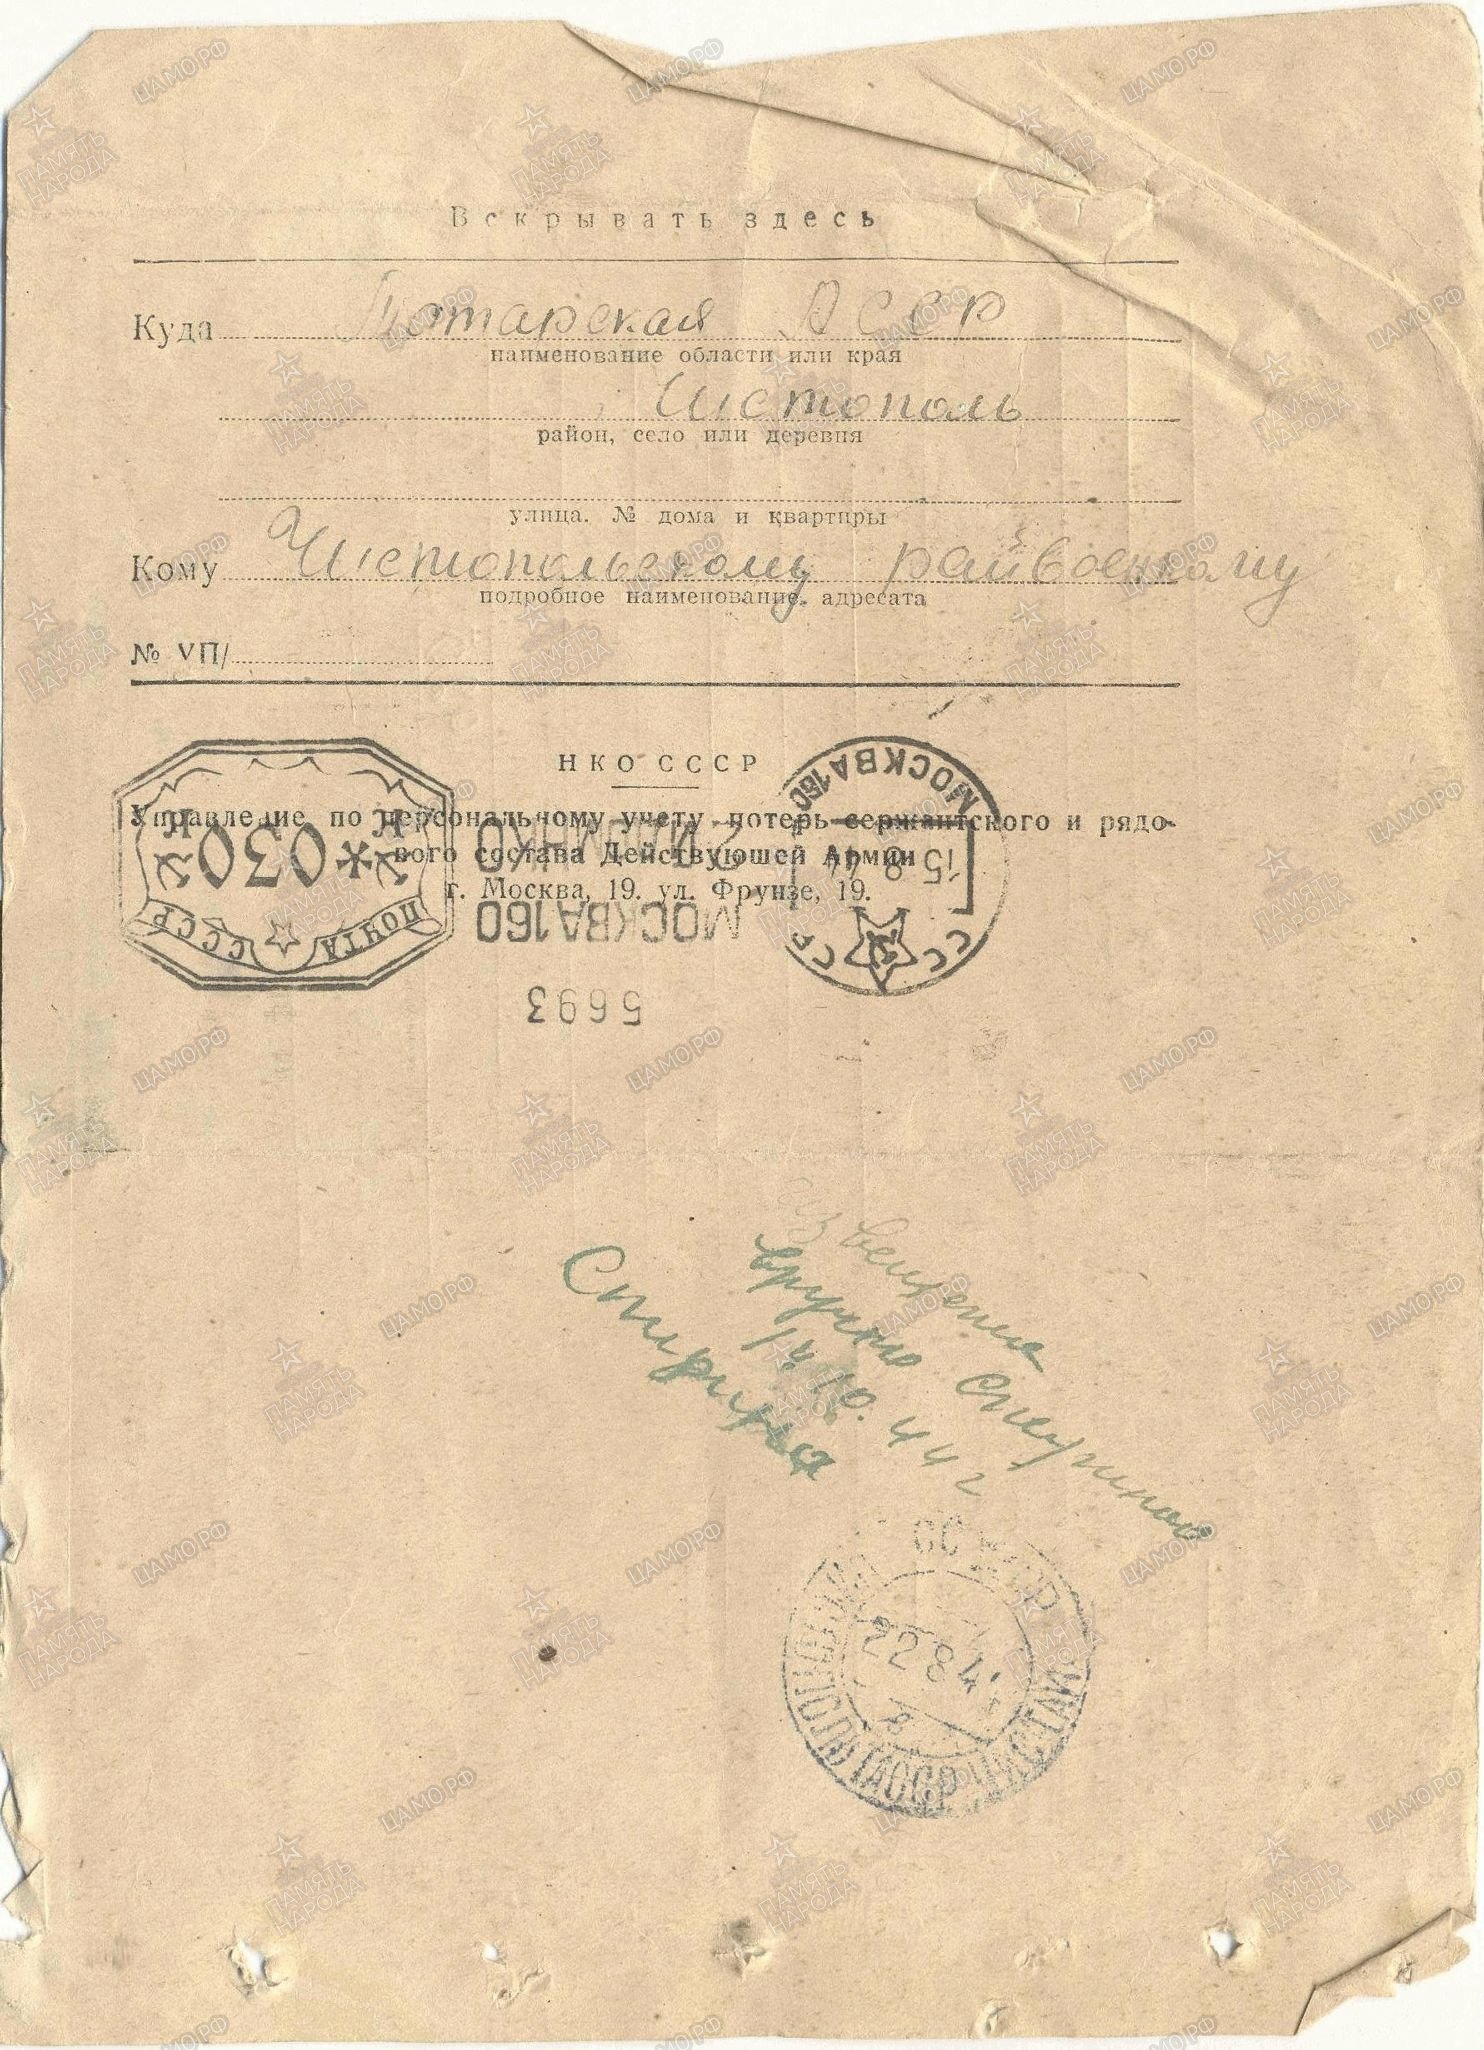 Вскрывать здесь
Куда Татарская АССР
наименование области или края
Чистополь
район, село или деревня
улица, № дома и квартиры
Кому Чистопольскому райвоенкому
подробное наименование адресата
№ УП/
НКО СССР
Управление по персональному учету потерь сержантского и рядо-
вого состава Действующей Армии
г. Москва, 19. ул. Фрунзе, 19.
К * 030 К
ПОЧТА СССР
МОСКВА 160
5693
МОСКВА 160
15 8 44
СССР
извещение
вручено
14.10.44 г
Спирина
22 8 4
ЦАМО.РФ
ПАМЯТЬ НАРОДА